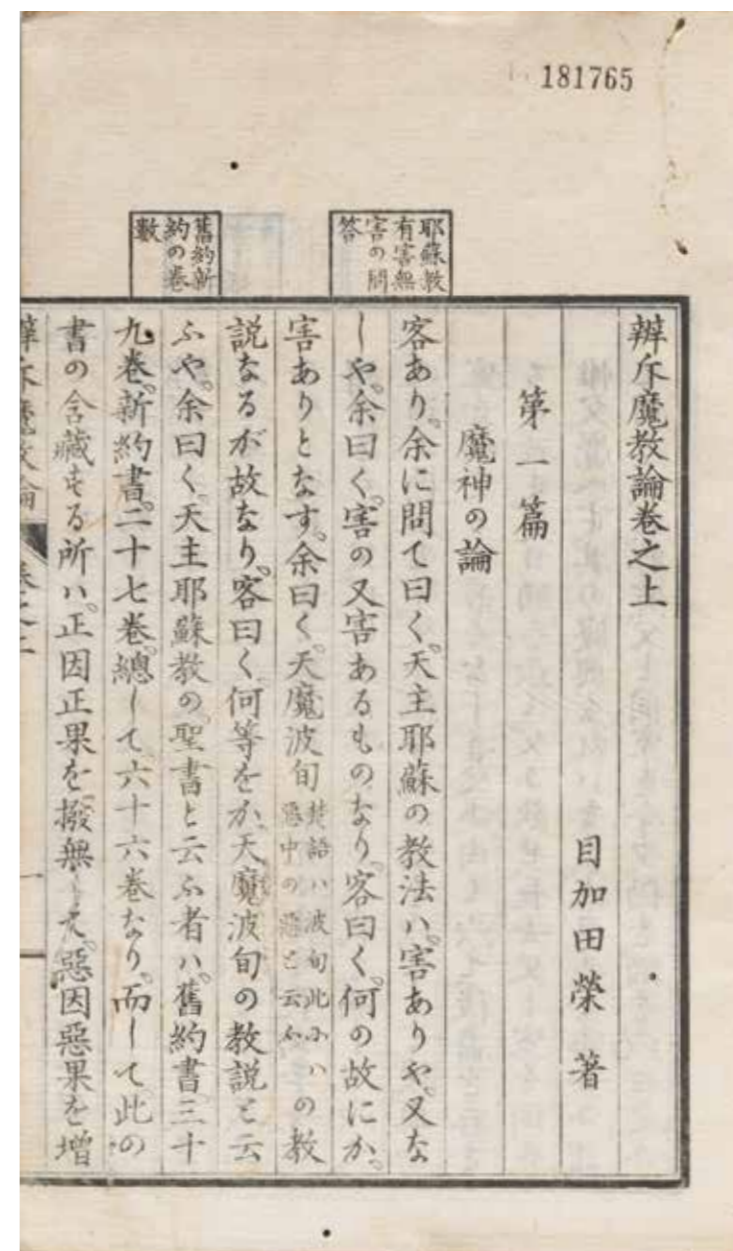 181765
耶蘇教
有害無
害の問
答
舊約新
約の巻
數
辨斥魔教論卷之上
目加田榮 著
第一篇
魔神の論
客あり。余に問て曰く。天主耶蘇の教法ハ。害ありや。又な
しや。余曰く。害の又害あるものなり。客曰く。何の故にか。
害ありとなす。余曰く。天魔波旬梵語ハ波旬此にハ惡中の惡と云ふの教
説なるが故なり。客曰く何等をか。天魔波旬の教説と云
ふや。余曰く。天主耶蘇教の。聖書と云ふ者ハ。舊約書。三十
九巻。新約書。二十七巻。總して。六十六巻なり。而して此の
書の含藏する所ハ。正因正果を。撥無して。惡因惡果を増